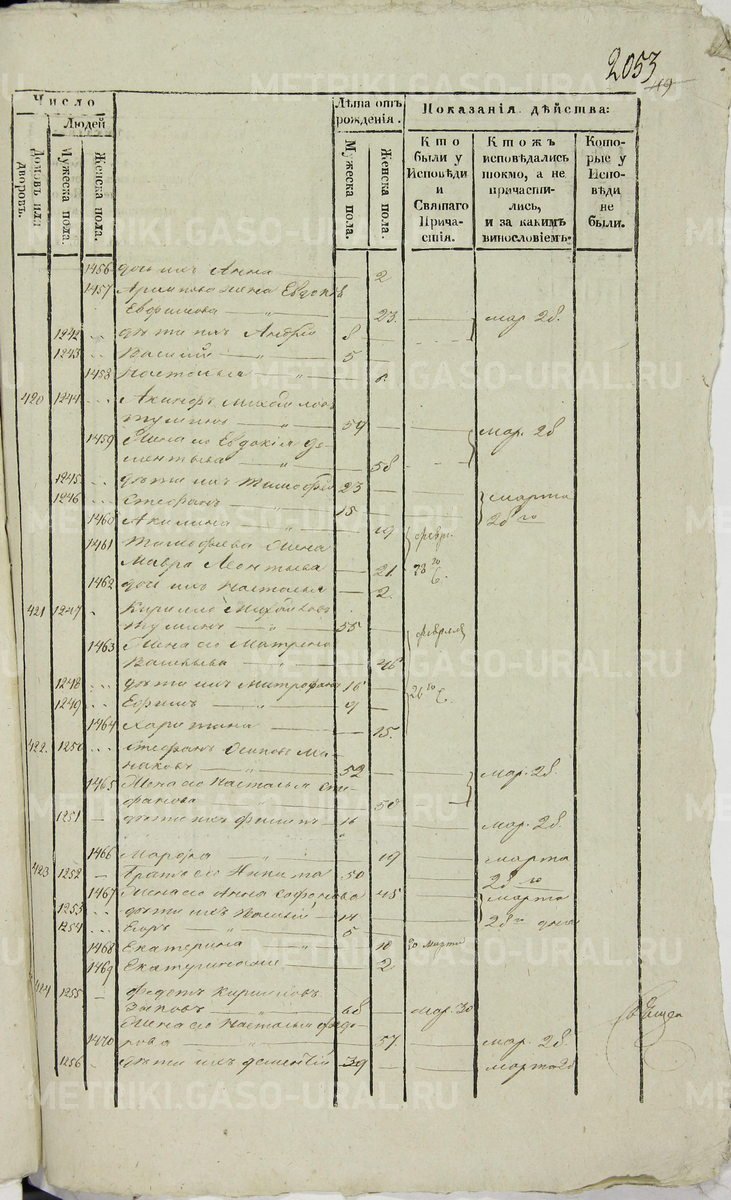 2053
49
Число
Людей
Домовъ или дворовъ.
Мужеска пола.
Женска пола.
Лѣта отъ рожденія.
Мужеска пола.
Женска пола.
Показанія дѣйства:
Кто были у Исповѣди и Святаго Причастія.
Ктожъ исповѣдались токмо, а не причастились, и за какимъ винословіемъ.
Которые у Исповѣди не были.
1456 дочь ихъ Анна 2
1457 жена Евдокія
Евфимова 23 мар 28.
1242 дѣти ихъ Андрей 8
1243 Василій 5
1458 Наталья
420 1244 Михайловъ
59 мар. 28
1459 Жена его Евдокія Де-
ментьева 58
1245 дѣти ихъ Тимофей 23
1246 Стефанъ 15 марта
1460 Акилина 19 28 го
1461 Тимофеева Жена февр.
Мавра Леонтьева 21
1462 дочь ихъ Наталья 2
421 1247 Кирилло Михайловъ
55 февраля
1463 Жена его Матрена
Васильева 46
1248 дѣти ихъ Митрофанъ 16
1249 Ефимъ 9
1464 Харитина 15.
422 1250 Стефанъ Осиповъ Ма-
наковъ 52 мар. 28.
1465 Жена его Наталья
50
1251 дѣти ихъ Филипъ 16 мар. 28.
1466 Марфа 19 марта
423 1252 Братъ его Никита 50 28 го
1467 Жена его Анна Софонова 45 марта
1253 дѣти ихъ Василій 14 28 го дня
1254 Егоръ 5
1468 Екатерина 10 30 марта
1469 Екатерина 2
424 1255 Федотъ Кириловъ
Зыковъ 68 мар. 30
Жена его Наталья Федо-
1470 рова 57 мар. 28.
1256 дѣти ихъ Дементій 39 марта 28
METRIKI.GASO-URAL.RU